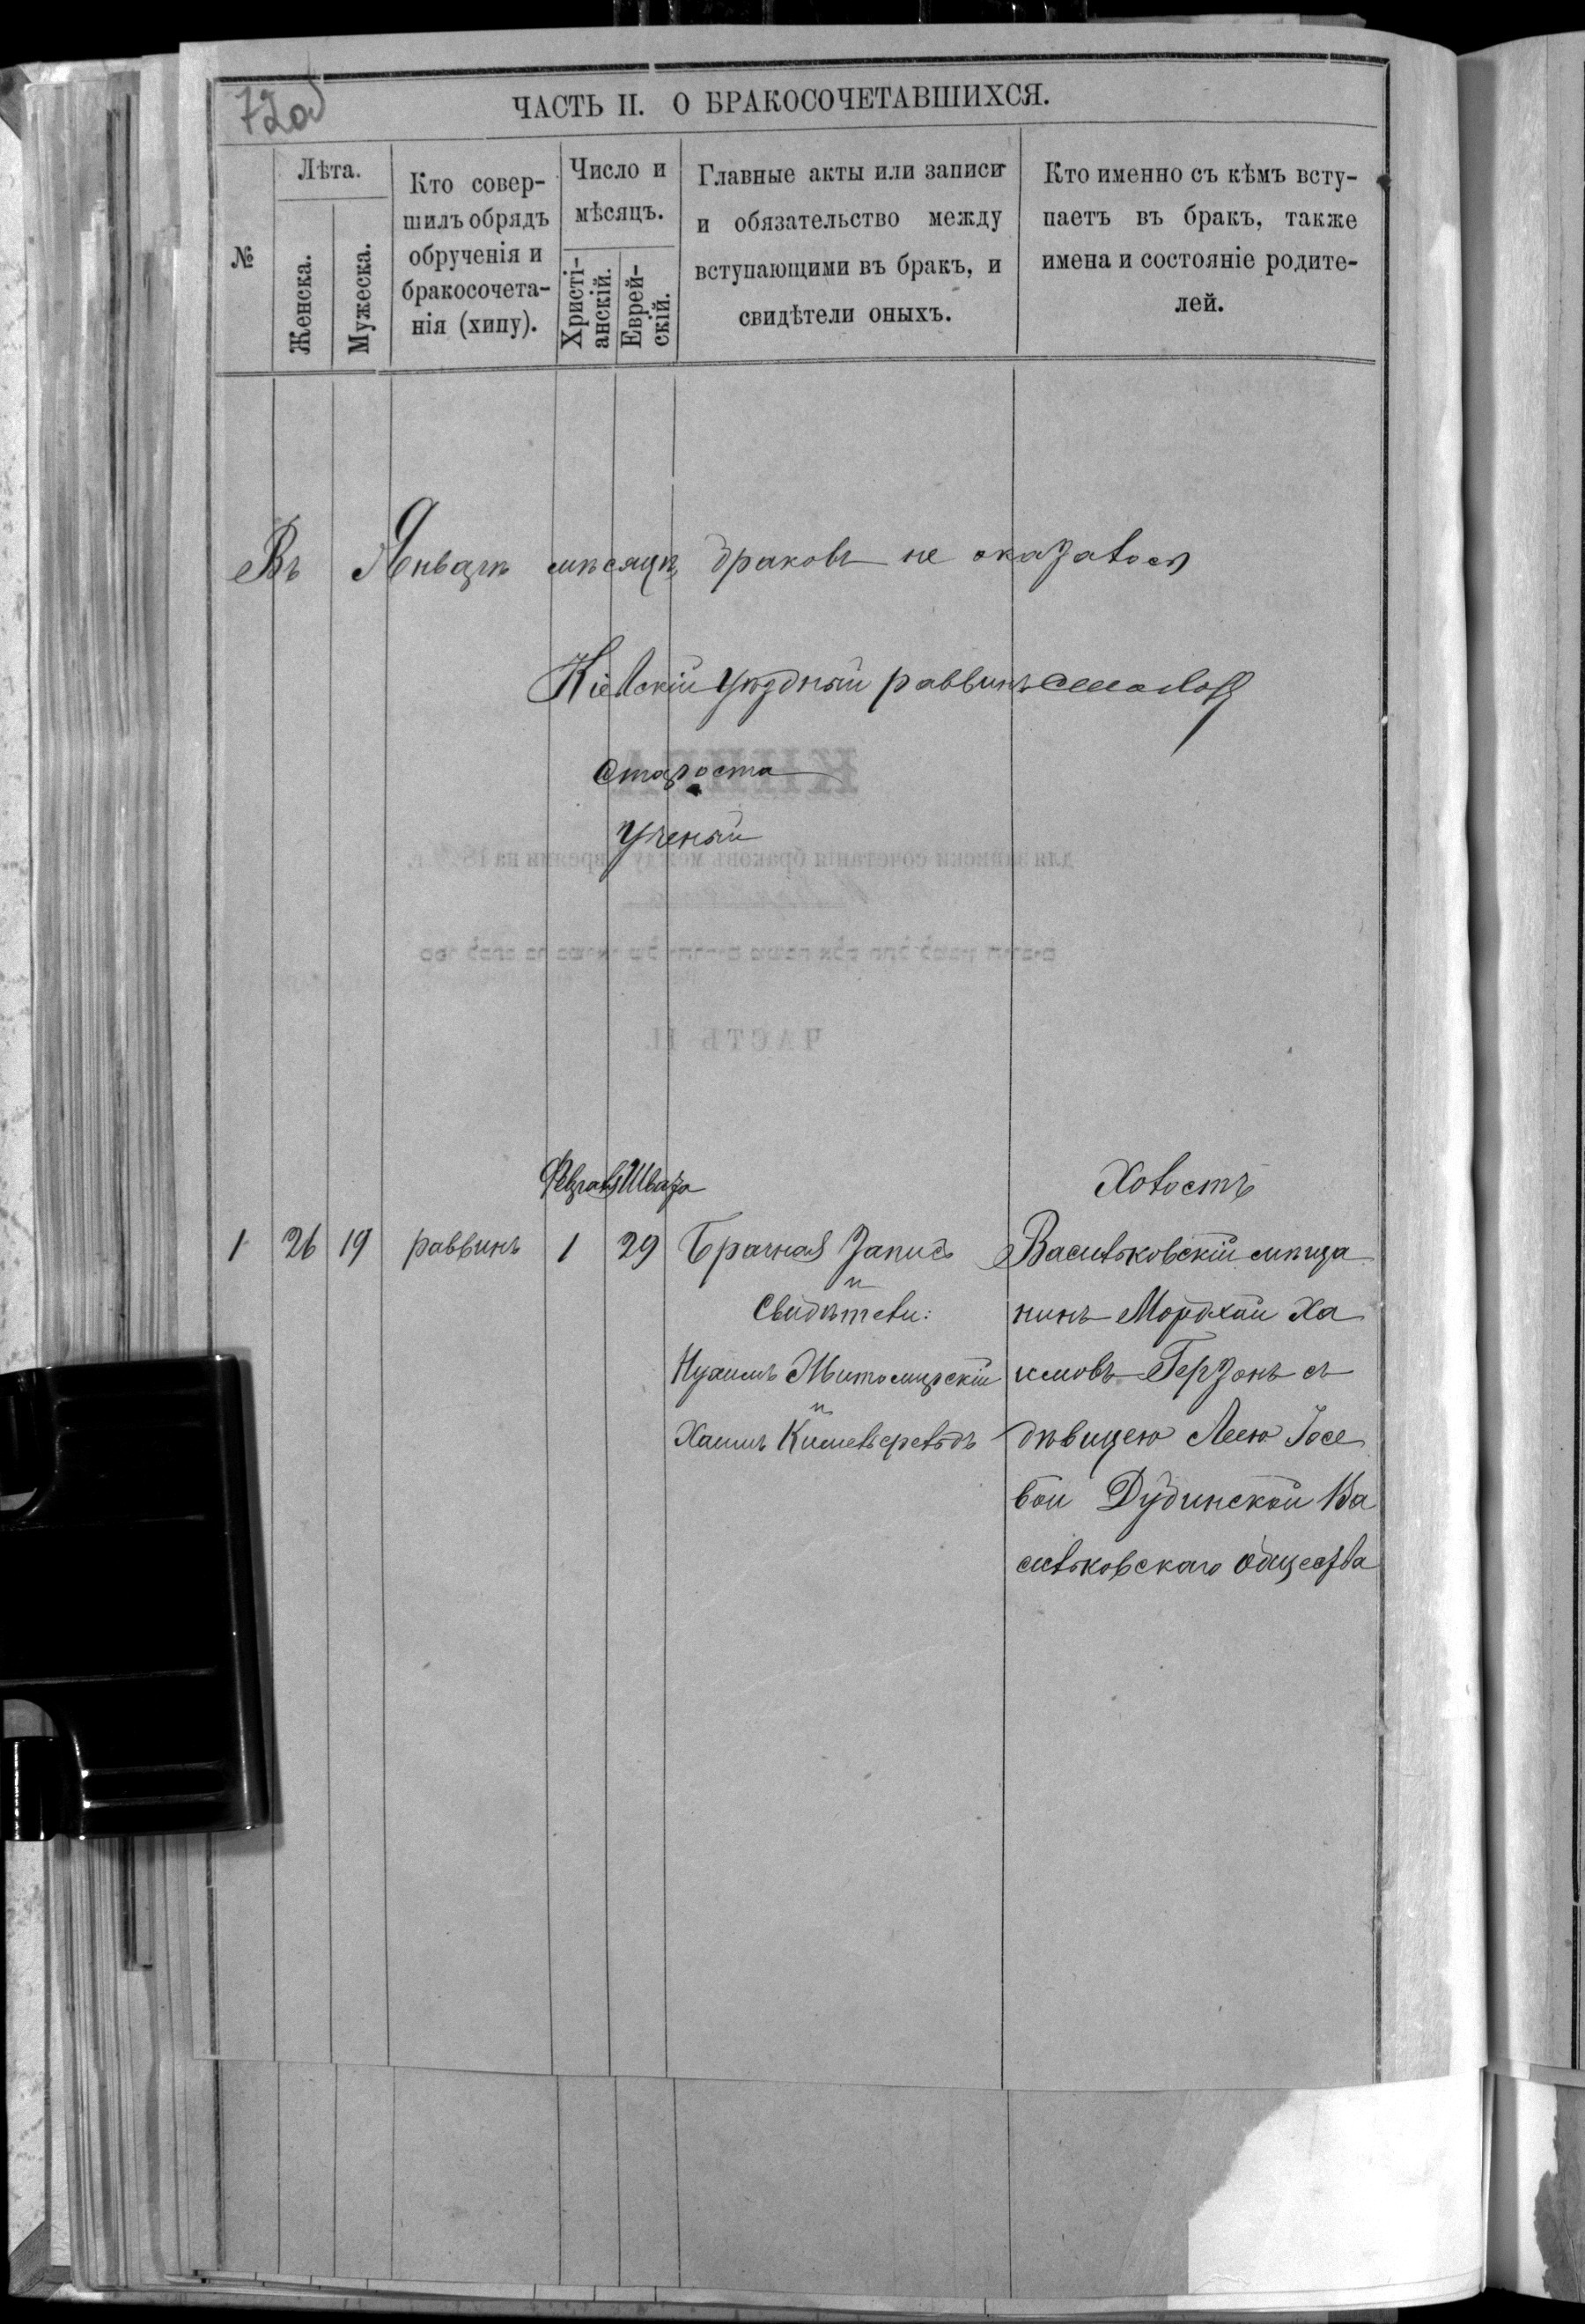 72об
ЧАСТЬ II. О БРАКОСОЧЕТАВШИХСЯ.
№
Лѣта.
Женска.
Мужеска.
Кто совер-
шилъ обрядъ
обрученія и
бракосочета-
нія (хипу).
Число и
мѣсяцъ.
Христі-
анскій.
Еврей-
скій.
Главные акты или записи
и обязательство между
вступающими въ бракъ, и
свидѣтели оныхъ.
Кто именно съ кѣмъ всту-
паетъ въ бракъ, также
имена и состояніе родите-
лей.
Въ Январѣ мѣсяцѣ браковъ не оказалось
Кіевскій Уѣздный раввинъ
Староста
Ученый
Февраль Швата Холостъ
1 26 19 раввинъ 1 29 Брачная Запись
и
Свидѣтели:
Нухимъ Житомирскій
и
Хаимъ
Васильковскій мѣща
нинъ Мордхай Ха
имовъ Герзонъ съ
дѣвицею Леею Іосе
вой Дудинской Ва
сильковскаго общества
КНИГА
для записки сочетанія браковъ между евреями на 18 г.
ЧАСТЬ II.